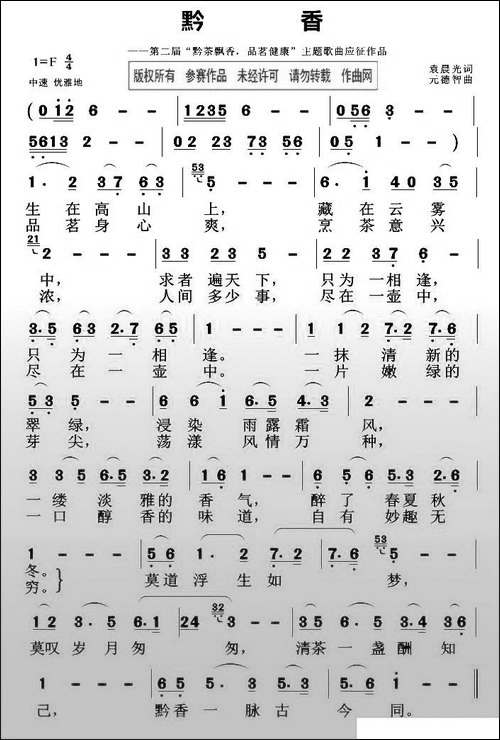 黔 香
——第二届“黔茶飘香，品茗健康”主题歌曲应征作品
1=F 4/4
中速 优雅地
版权所有 参赛作品 未经许可 请勿转载 作曲网
袁晨光词
元德智曲
(0 12 2 6 - | 1235 6 - - | 056 3 - -
5613 - - - | 02 23 73 56 | 05 1 - -)
1· 2 37 63 | 53 5 - - - | 6· 1 40 35
生 在高 山 上， 藏 在云 雾
品 茗身 心 爽， 烹 茶意 兴
21 2 - - - | 33 23 5 - | 22 37 6 -
中， 求者 遍天 下， 只为 一相 逢，
浓， 人间 多少 事， 尽在 一壶 中，
3·5 63 2·7 65 | 1 - - - | 1· 2 72 76
只 为 一 相 逢。 一 抹 清 新的
尽 在 一 壶 中。 一 片 嫩 绿的
53 5 - - | 66 12 6·5 4·3 | 2 - - -
翠 绿， 浸 染 雨 露 霜 风，
芽 尖， 荡 漾 风 情 万 种，
33 35 6·5 3·2 | 16 1 - - | 56 53 52 2·6
一 缕 淡 雅的 香 气， 醉 了 春夏 秋
一 口 醇 香的 味 道， 自 有 妙趣 无
1 - - - | 56 1· 2 72 | 7·6 53 5 - -
冬。
穷。}
莫道 浮 生 如 梦，
12 23 5 6·1 | 24 32 3 - - | 35 6·5 3·4 36
莫叹 岁 月 匆 匆， 清茶 一 盏 酬 知
1 - - - | 65 5· 3 21 | 5· 6 1 - -
己， 黔香 一 脉 古 今 同。